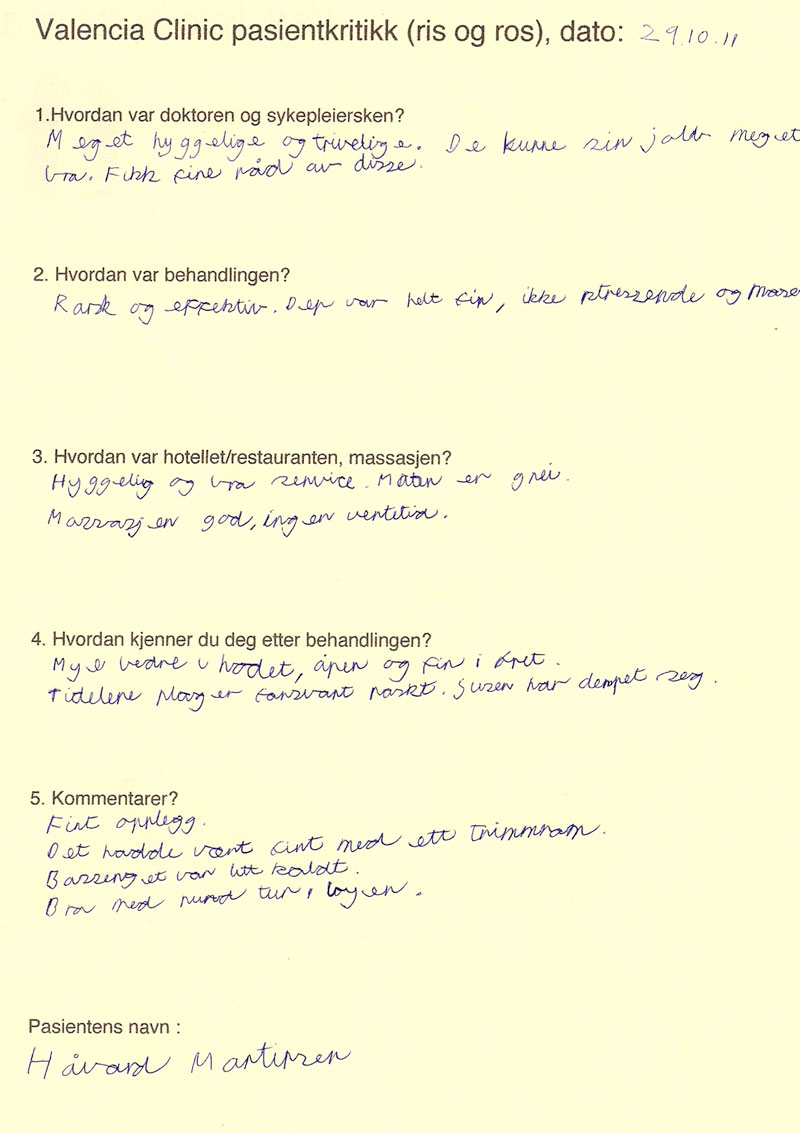 Valencia Clinic pasientkritikk (ris og ros), dato: 29.10.11
1.Hvordan var doktoren og sykepleiersken?
Meget hyggelige og trivelige. De kunne sin jobb meget
bra. Fikk fine råd av disse.
2. Hvordan var behandlingen?
Rask og effektiv. Den var helt fin, ikke stressende og
3. Hvordan var hotellet/restauranten, massasjen?
Hyggelig og bra service. Maten er grei.
Massasjen god, ingen ventetid.
4. Hvordan kjenner du deg etter behandlingen?
Mye bedre i hodet, åpen og fin i øret.
Tidelene plager forsvant raskt. Susen har dempet seg.
5. Kommentarer?
Fint opplegg.
Det hadde vært fint med ett trimmrom.
Bassenget var litt kaldt.
Bra med rund tur i byen.
Pasientens navn :
Håvard Martinsen